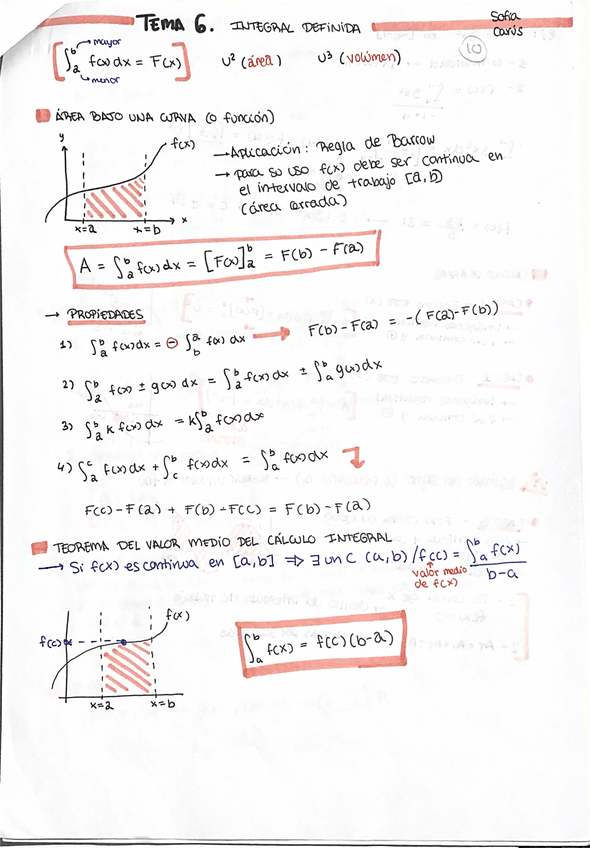 TEMA 6. INTEGRAL DEFINIDA
Sofía
Carús
10
mayor
[∫ₐᵇ f(x) dx = F(x)] U² (área) U³ (volúmen)
menor
ÁREA BAJO UNA CURVA (o función)
y
f(x)
x=a x=b x
→ Aplicación: Regla de Barrow
→ para su uso f(x) debe ser continua en
el intervalo de trabajo [a,b]
(área cerrada)
A = ∫ₐᵇ f(x) dx = [F(x)]ₐᵇ = F(b) - F(a)
→ PROPIEDADES
1) ∫ₐᵇ f(x) dx = ⊖ ∫_b^a f(x) dx → F(b) - F(a) = -(F(a) - F(b))
2) ∫ₐᵇ f(x) ± g(x) dx = ∫ₐᵇ f(x) dx ± ∫ₐᵇ g(x) dx
3) ∫ₐᵇ k f(x) dx = k∫ₐᵇ f(x) dx
4) ∫ₐᶜ f(x) dx + ∫_c^b f(x) dx = ∫ₐᵇ f(x) dx
F(c) - F(a) + F(b) - F(c) = F(b) - F(a)
TEOREMA DEL VALOR MEDIO DEL CÁLCULO INTEGRAL
→ Si f(x) es continua en [a,b] ⇒ ∃ un C (a,b) / f(c) = ∫ₐᵇ f(x)
b-a
valor medio
de f(x)
f(x)
f(c)
x=a x=b
∫ₐᵇ f(x) = f(c) (b-a)